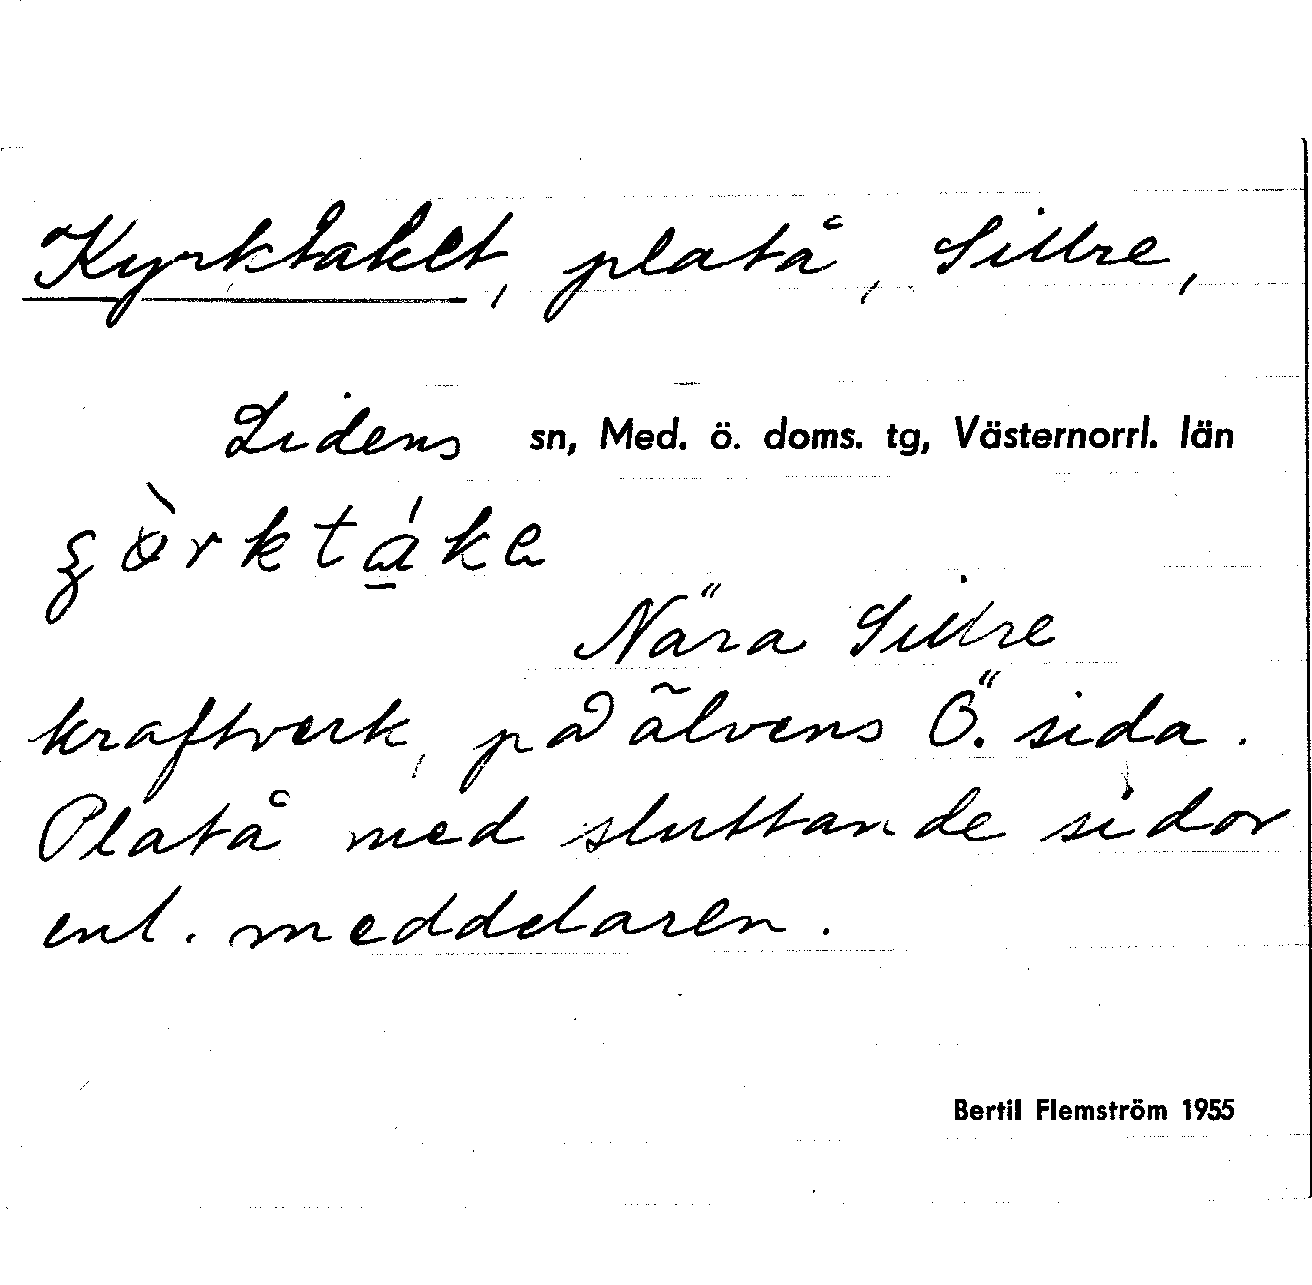 Kyrktaket, platå, Sillre,
Lidens sn, Med. ö. doms. tg, Västernorrl. län
Nära Sillre
kraftverk, på älvens Ö. sida.
Platå med sluttande sidor
enl. meddelaren.
Bertil Flemström 1955